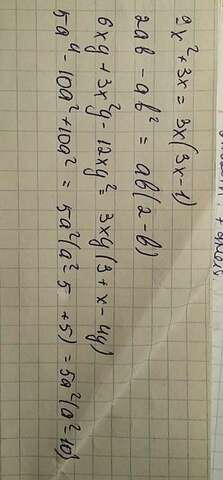 9x² + 3x = 3x(3x-1)
2ab - ab² = ab(2-b)
6xy + 3x²y - 12xy² = 3xy(3 + x - 4y)
5a⁴ - 10a² + 10a² = 5a²(a² - 5 + 5) = 5a²(a² - 10)